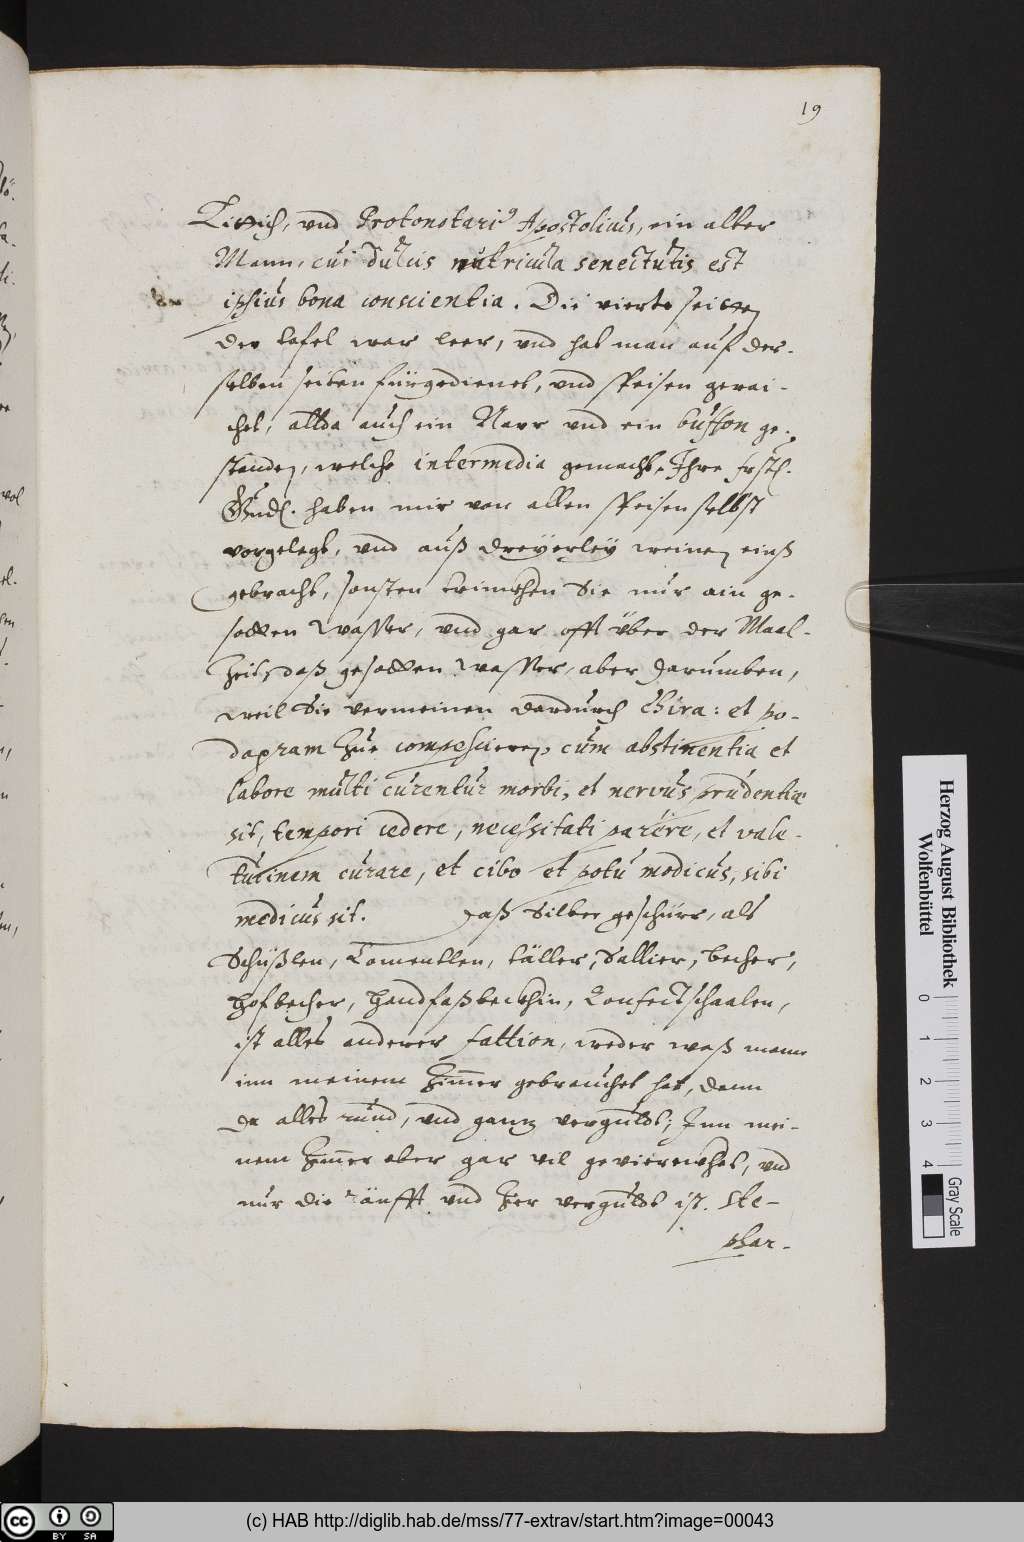 19
Littich, vnd Protonotari9 Apostolicus, ein alter
Mann, cui dulcis nutricula senectutis est
ipsius bona conscientia. Die vierte seitten
der tafel war leer, vnd hat man auf der-
selben seiten fürgedienet, vnd speisen gerai-
chet, allda auch ein Narr vnd ein buffon ge-
standen, welche intermedia gemacht, Ihre frstl.
Gnd. haben mir von allen speisen selbst
vorgelegt, vnd auß dreyerley weinen einß
gebracht, sonsten trinckhen Sie nur ain ge-
sotten Wasser, vnd gar offt über der Maal-
Zeit, daß gesotten Wasser, aber darumben,
weil Sie vermeinen dardurch Chira: et po-
dagram Zue compescieren, cum abstinentia et
labore multi curentur morbi, et nervus prudentiæ
sit, tempori cedere, necessitati parere, et vale-
tudinem curare, et cibo et potu modicus, sibi
medicus sit. Daß Silber geschürr, als
Schüßlen, Comentlen, täller, Sallier, becher,
Hofbecher, Handfaßbeckhin, Confectschaalen,
ist alles anderer fattion, weder waß mann
inn meinem Zimmer gebrauchet hat, dann
da alles rund, vnd gantz vergüldt; Inn mei-
nem Zimmer aber gar vil geviereckhet, vnd
nur die ränfft vnd Zier vergüldt ist. Ste-
phar-
Herzog August Bibliothek
Wolfenbüttel
0 1 2 3 4
Gray Scale
cc BY SA
(c) HAB http://diglib.hab.de/mss/77-extrav/start.htm?image=00043